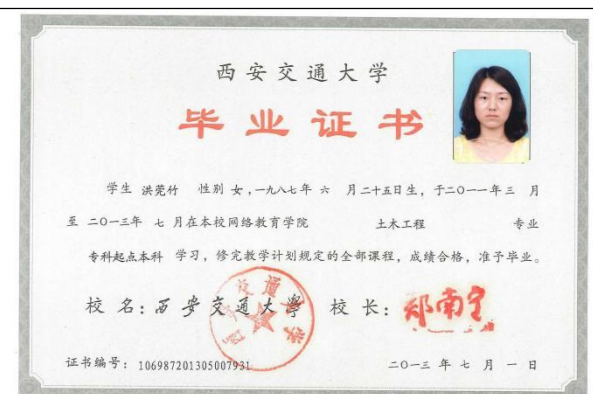 西安交通大学
毕业证书
学生 洪莞竹 性别 女,一九八七年 六 月二十五日生,于二〇一一年 三 月
至 二〇一三年 七 月在本校网络教育学院 土木工程 专业
专科起点本科 学习,修完教学计划规定的全部课程,成绩合格,准予毕业。
校 名:西安交通大学 校 长:郑南宁
证书编号:106987201305007931 二〇一三 年 七 月 一 日
西安交通大学